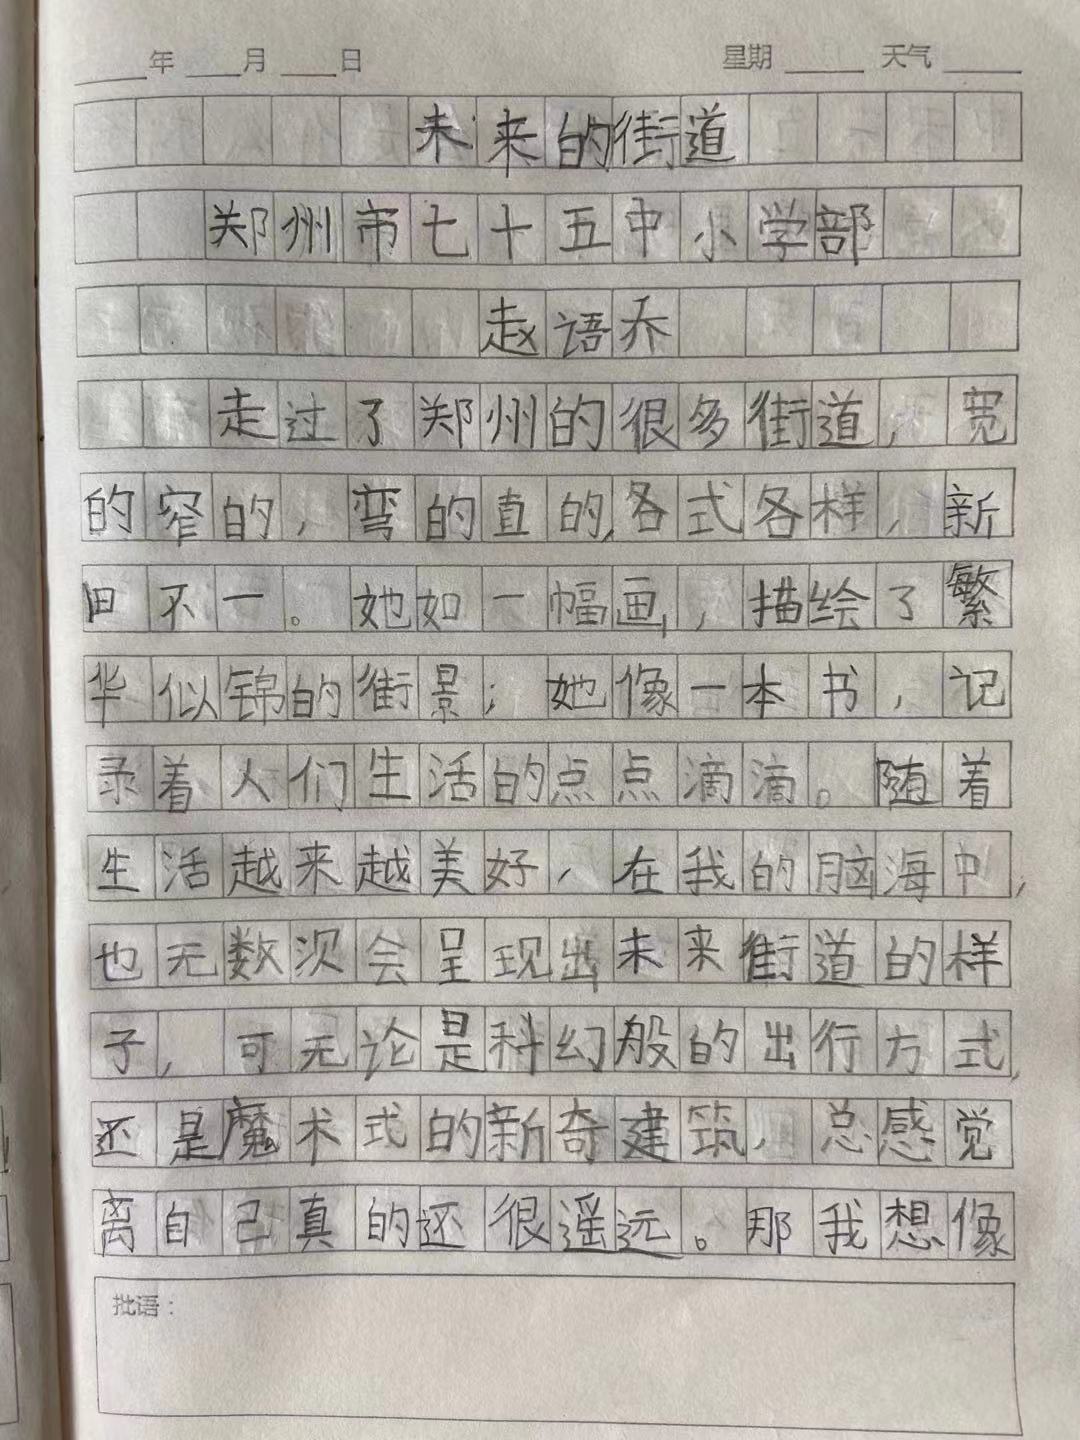 年 月 日 星期 天气
未来的街道
郑州市七十五中小学部
赵语乔
走过了郑州的很多街道，宽
的窄的，弯的直的，各式各样，新
旧不一。她如一幅画，描绘了繁
华似锦的街景；她像一本书，记
录着人们生活的点点滴滴。随着
生活越来越美好，在我的脑海中，
也无数次会呈现出未来街道的样
子，可无论是科幻般的出行方式，
还是魔术式的新奇建筑，总感觉
离自己真的还很遥远。那我想像
批语：